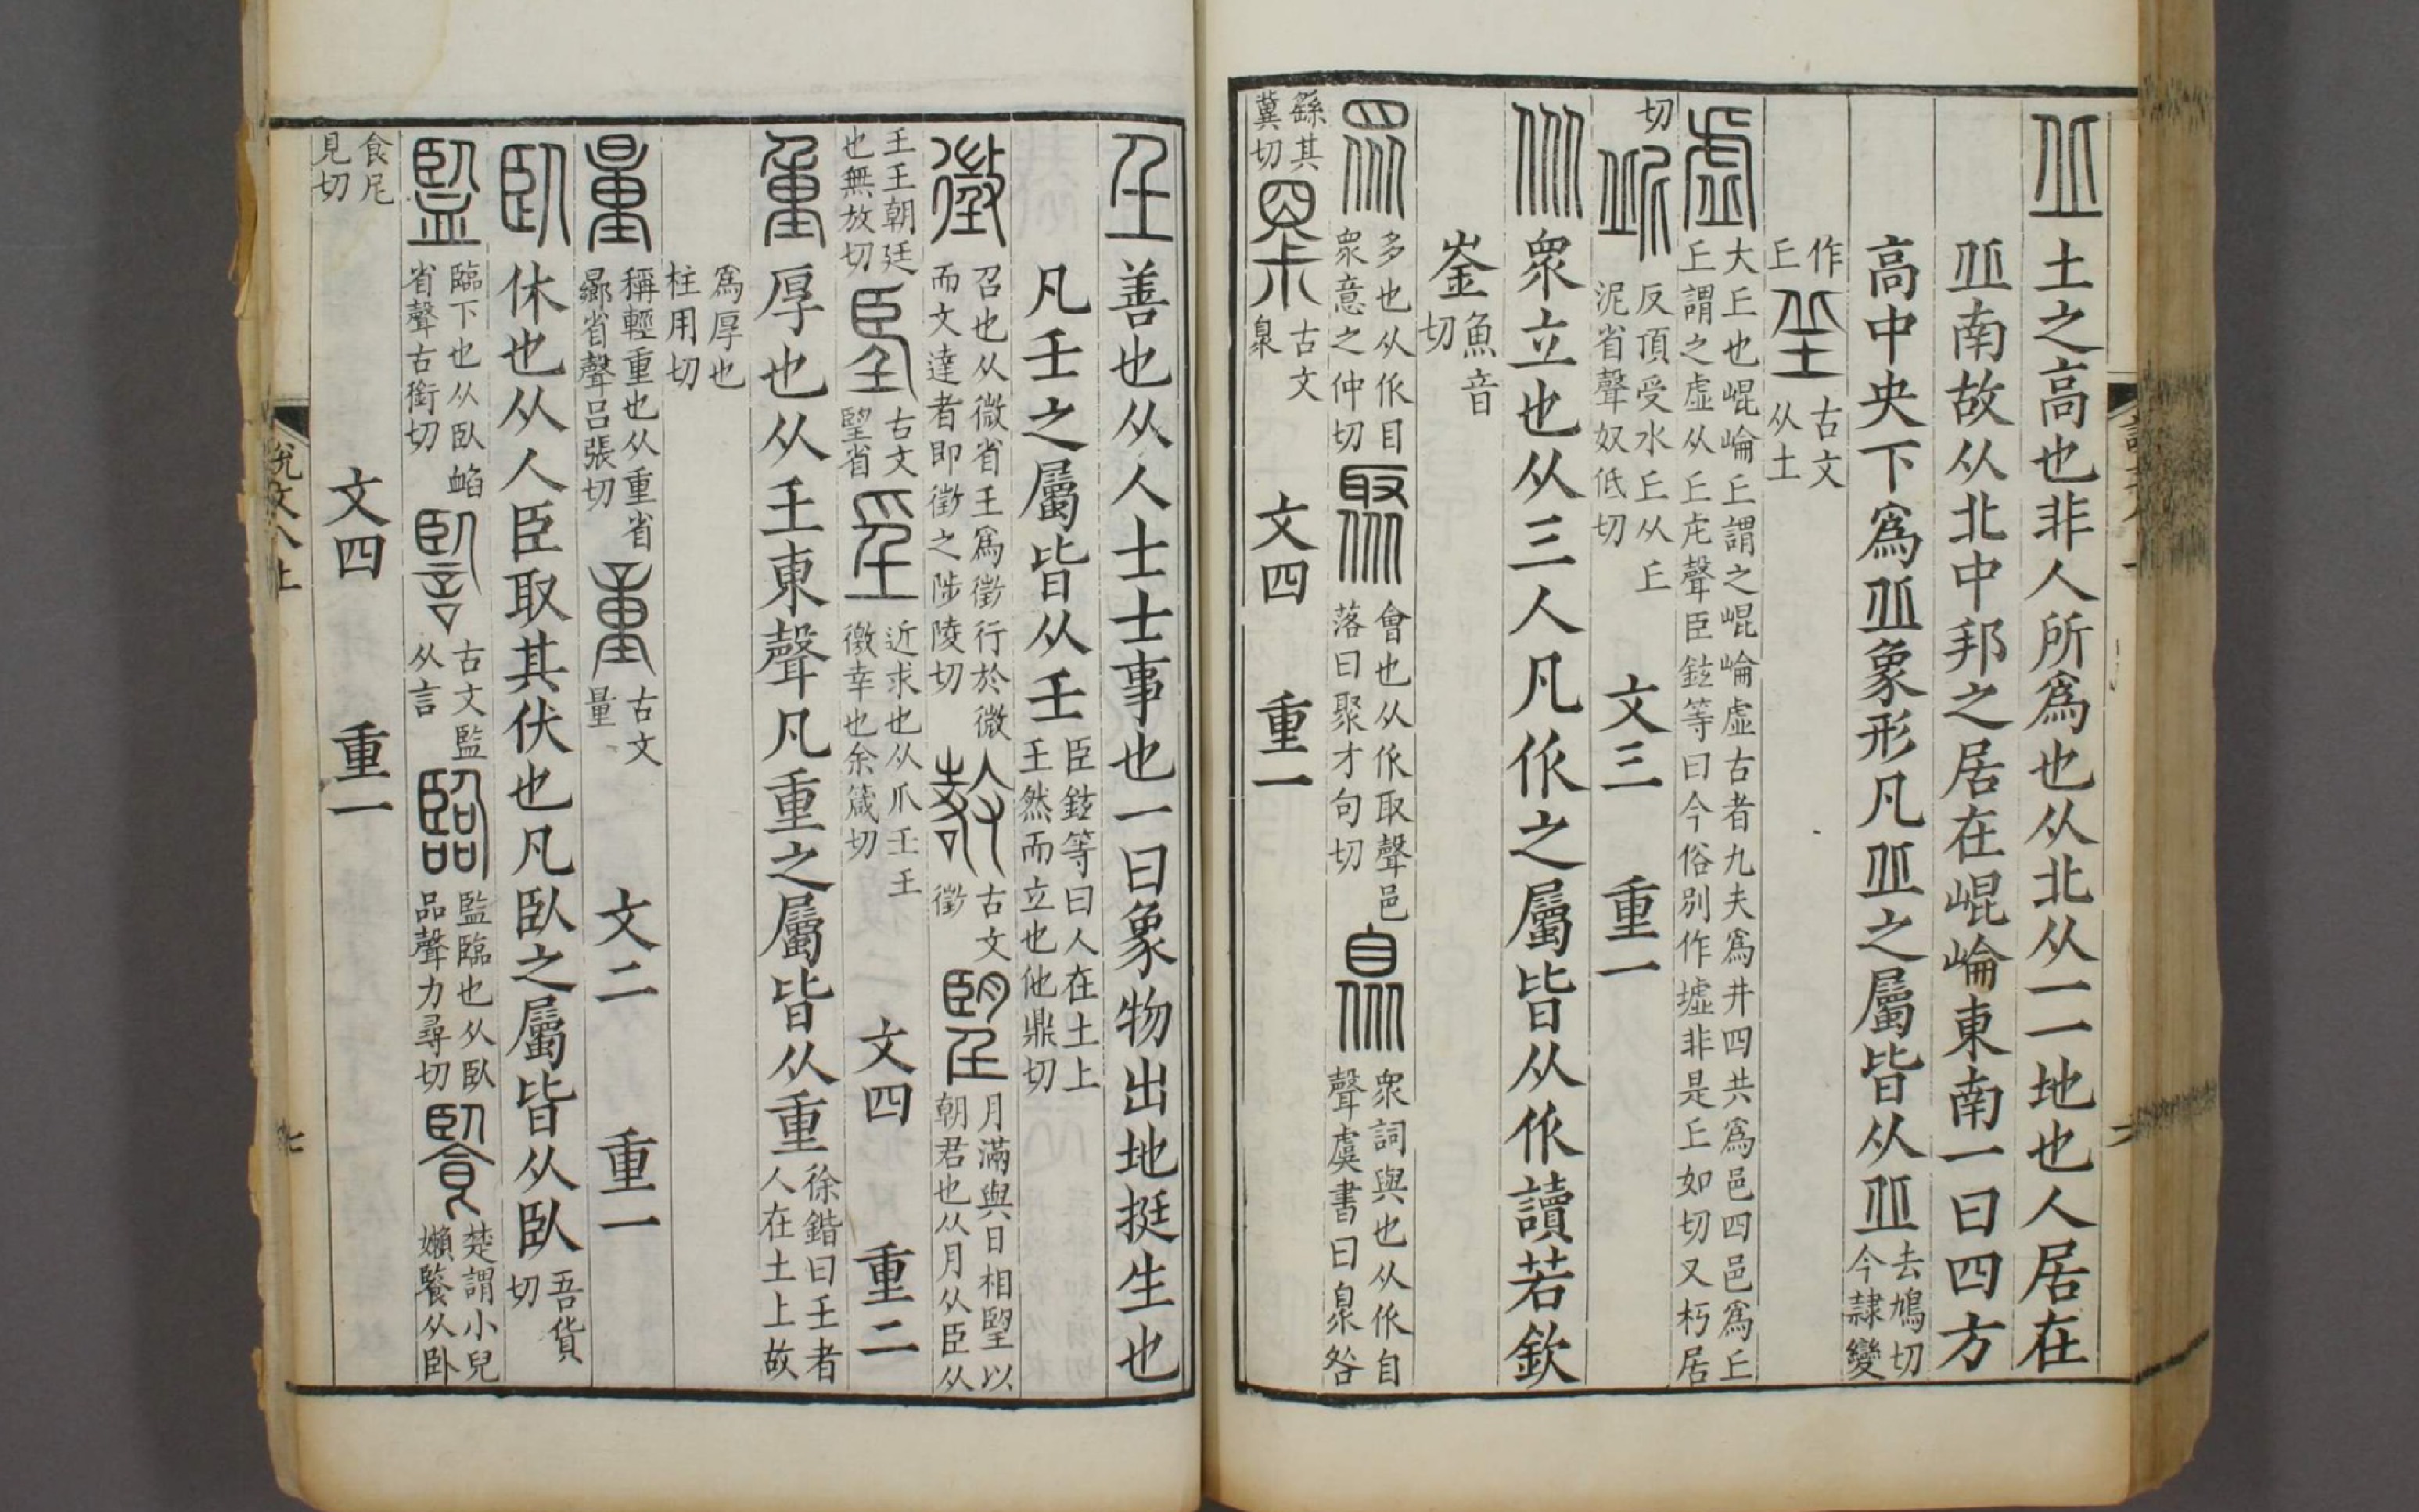 丘土之高也非人所爲也从北从一一地也人居在
丠南故从北中邦之居在崐崘東南一曰四方
高中央下爲丠象形凡丠之屬皆从丠去鳩切今隷變
作丘𡊣古文从土
虛大丘也崐崘丘謂之崐崘虛古者九夫爲井四共爲邑四邑爲丘丘謂之虛从丘虍聲臣鉉等曰今俗別作墟非是丘如切又朽居
切𡰥反頂受水丘从丘泥省聲奴低切 文三 重一
㐺眾立也从三人凡㐺之屬皆从㐺讀若欽
崟魚音切
眾多也从㐺目眾意之仲切聚會也从㐺取聲邑落曰聚才句切臮眾詞與也从㐺自聲虞書曰臮咎
繇其冀切古文臮 文四 重一
𡈼善也从人士士事也一曰象物出地挺生也
凡𡈼之屬皆从𡈼臣鉉等曰人在土上𡈼然而立也他鼎切
徵召也从微省𡈼爲徵行於微而文達者即徵之陟陵切古文徵朢月滿與日相朢以朝君也从月从臣从
𡈼𡈼朝廷也無放切𦣠古文朢省㸒近求也从爪𡈼𡈼徼幸也余箴切 文四 重二
重厚也从𡈼東聲凡重之屬皆从重徐鍇曰𡈼者人在土上故
爲厚也柱用切
量稱輕重也从重省曏省聲呂張切古文量 文二 重一
臥休也从人臣取其伏也凡臥之屬皆从臥吾貨切
監臨下也从臥䘓省聲古銜切古文監从言臨監臨也从臥品聲力尋切𩚳楚謂小兒嬾𩚳从卧
食尼見切 文四 重一
說文八上
七